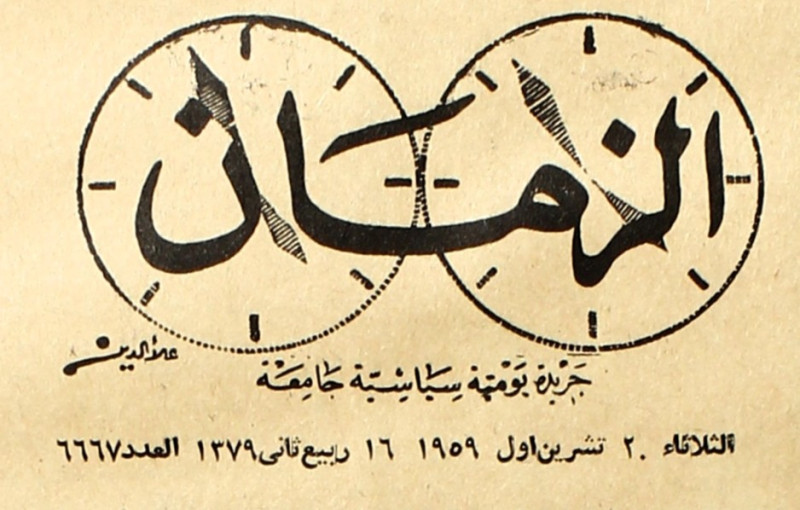 الزمان
علاءالدين
جَريْدة يَوْمْيّة سِيَاسْيّة جَامِعَة
الثلاثاء ٢٠ تشرين اول ١٩٥٩ ١٦ ربيع ثانى ١٣٧٩ العدد ٦٦٦٧